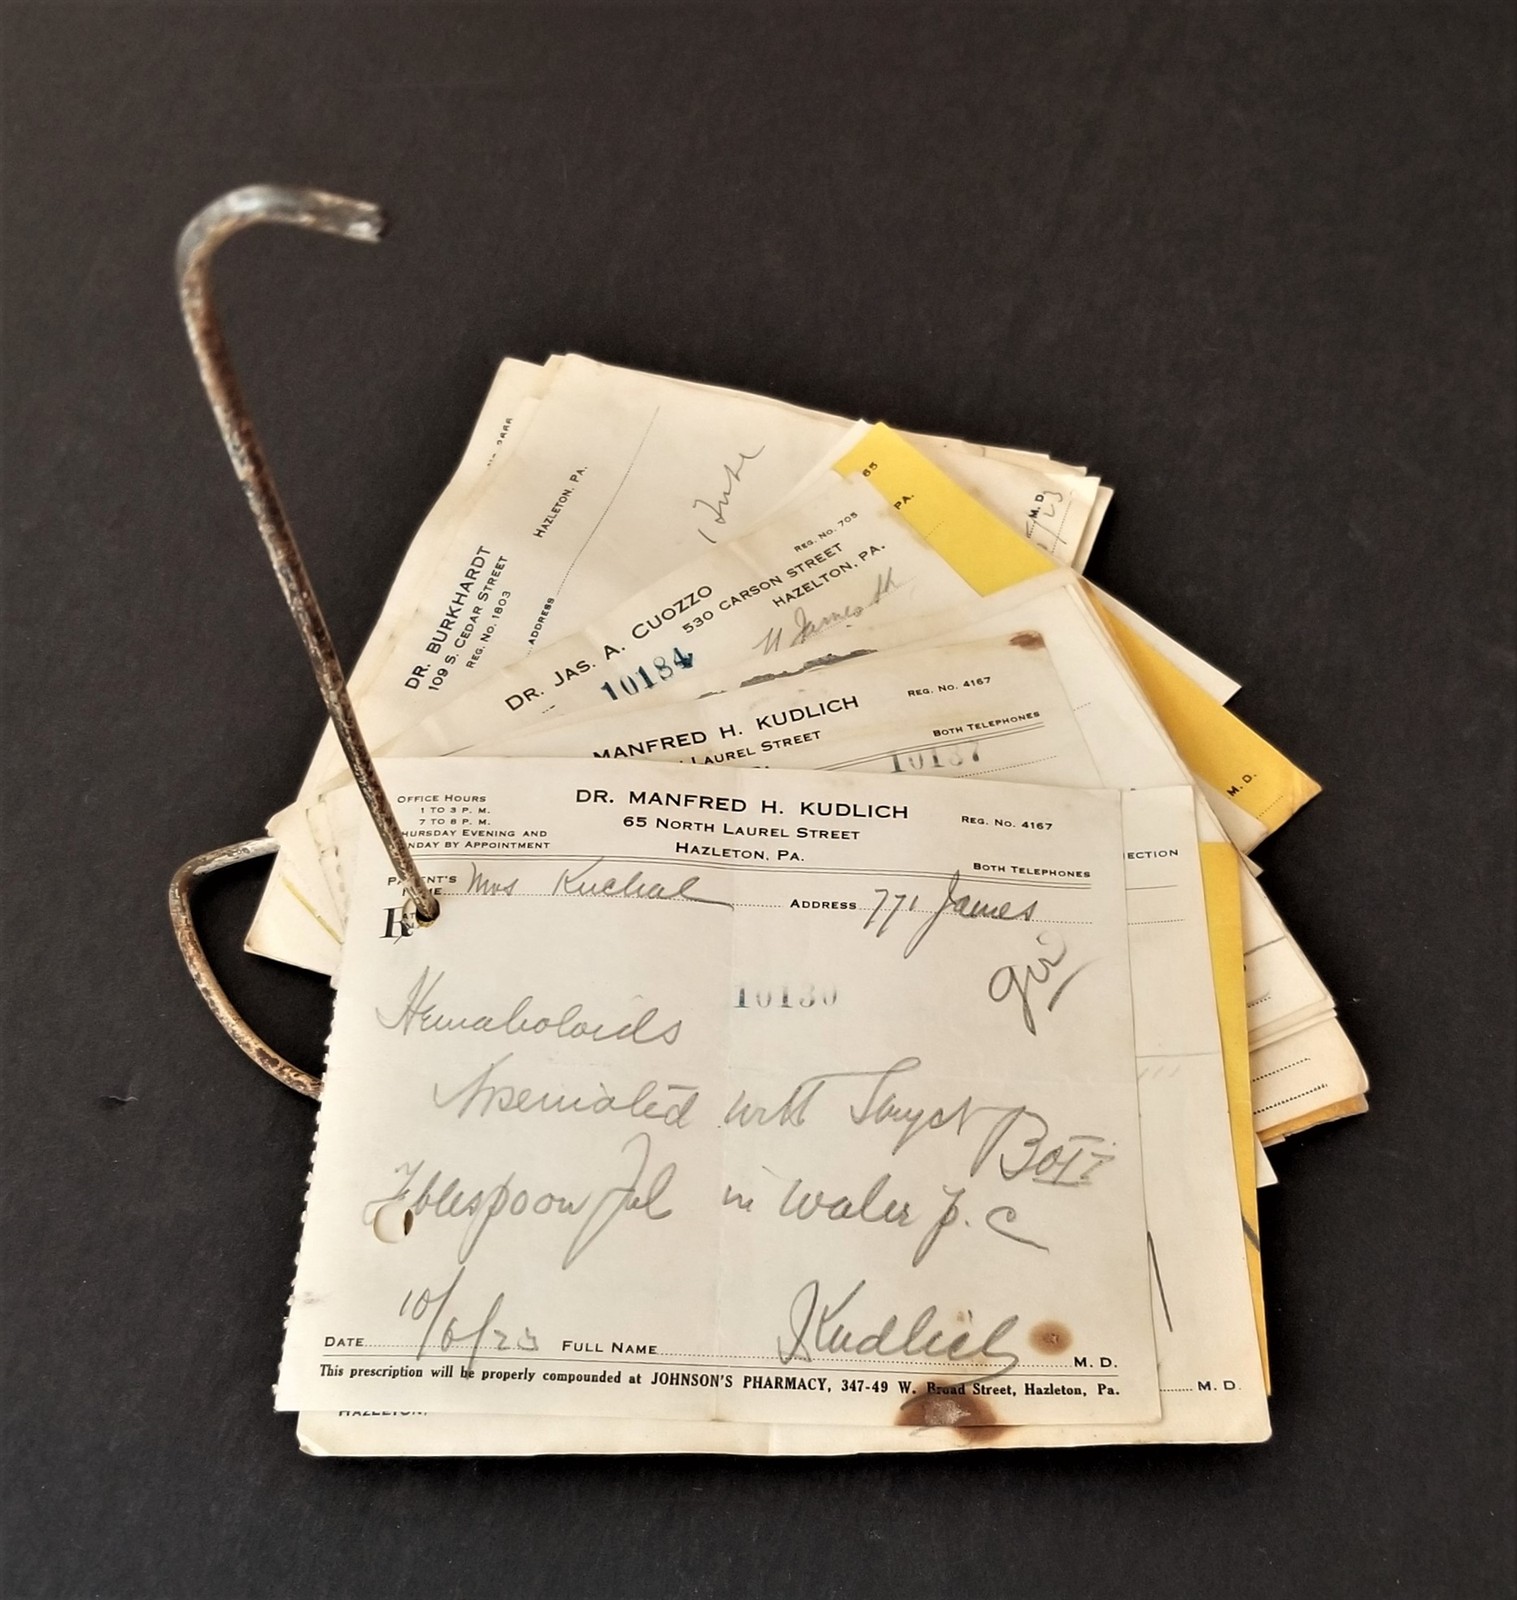 HAZLETON, PA.
DR. BURKHARDT
109 S. CEDAR STREET
REG. NO. 1803
ADDRESS
65
PA.
M. D.
REG. NO. 705
DR. JAS. A. CUOZZO
530 CARSON STREET
HAZELTON, PA.
10184
James
MANFRED H. KUDLICH
REG. NO. 4167
LAUREL STREET
BOTH TELEPHONES
10187
M. D.
OFFICE HOURS
1 TO 3 P. M.
7 TO 8 P. M.
HURSDAY EVENING AND
NDAY BY APPOINTMENT
DR. MANFRED H. KUDLICH
65 NORTH LAUREL STREET
HAZLETON, PA.
REG. NO. 4167
BOTH TELEPHONES
ECTION
PATIENT'S NAME Mrs Kuchal ADDRESS 771 James
10130
Hemaboloids
Arseniated with Strych
Tblespoon ful in water p.c
DATE 10/6/23 FULL NAME Kudlich M. D.
This prescription will be properly compounded at JOHNSON'S PHARMACY, 347-49 W. Broad Street, Hazleton, Pa.
M. D.
HAZLETON,